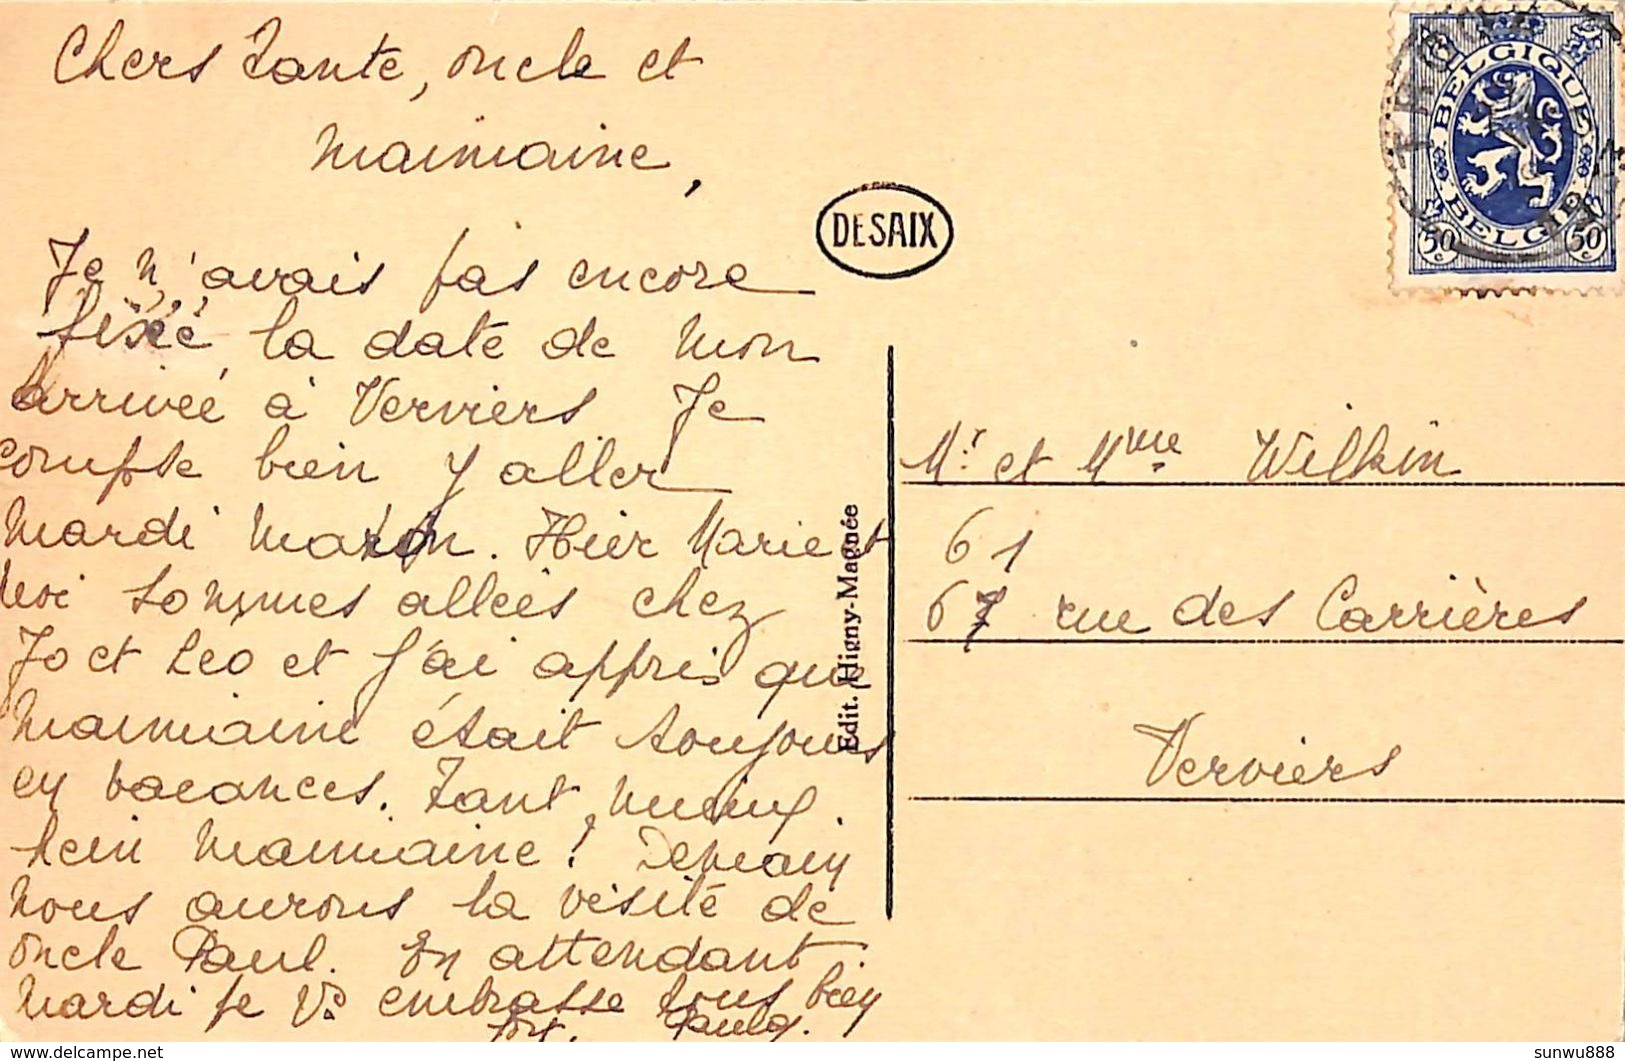 Chers Tante, oncle et
mainaine,
Je n'avais pas encore
fixé la date de mon
arrivée à Verviers Je
compte bien y aller
mardi matin. Hier Marie et
moi sommes allées chez
Jo et Léo et j'ai appris que
mainaine était toujours
en vacances. Tant mieux
hein mainaine! Demain
nous aurons la visite de
oncle Paul. En attendant
mardi je Vs embrasse tous bien
fort. Paula.
DESAIX
Edit. Higny-Magnée
BELGIQUE
BELGIE
50 c
50 c
Mr. et Mme Wilkin
61
67 rue des Carrières
Verviers
sunwu888